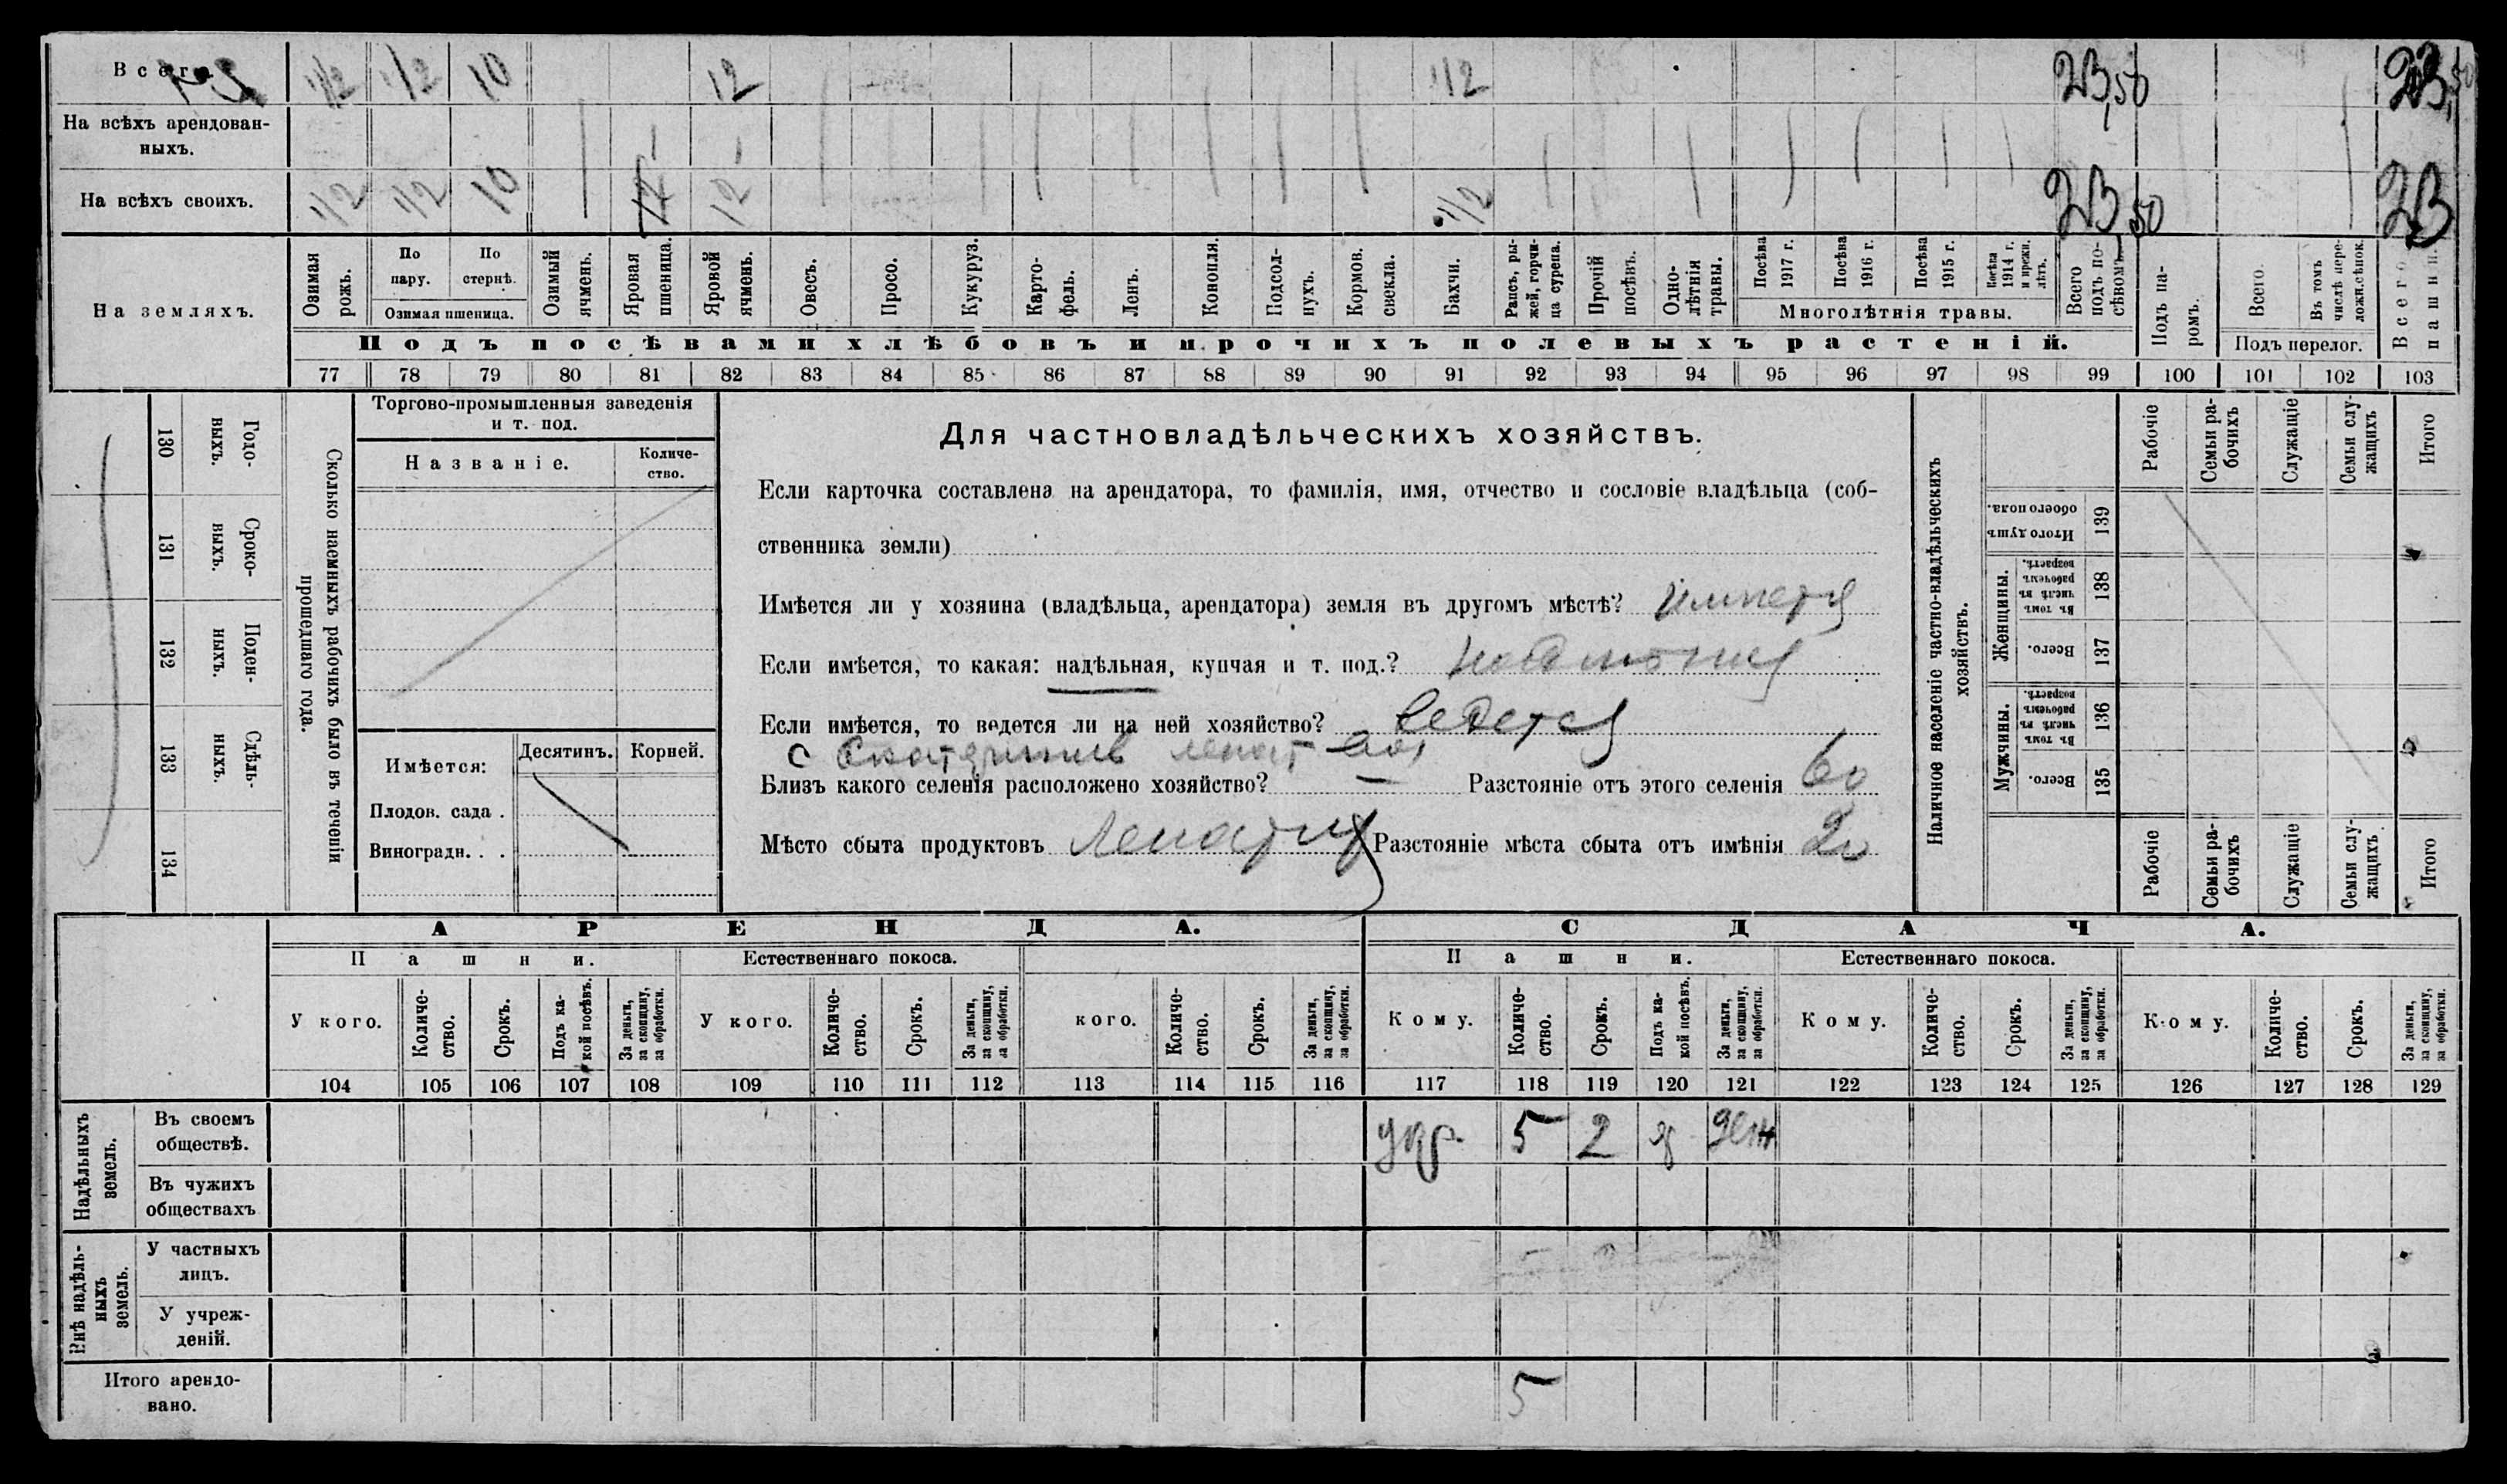 Всего
1/2 1/2 10 12 1/2 23,50 23,50
На всѣхъ арендован-
ныхъ.
На всѣхъ своихъ.
1/2 1/2 10 12 12 1/2 23,50 23
На земляхъ.
Озимая рожь.
По пару.
По стернѣ.
Озимая пшеница.
Озимый ячмень.
Яровая пшеница.
Яровой ячмень.
Овесъ.
Просо.
Кукуруз.
Карто-
фель.
Ленъ.
Конопля.
Подсол-
нухъ.
Кормов. свекла.
Бахчи.
Рапсъ, ры-
жей, горчи-
ца сурепа.
Прочій посѣвъ.
Одно-
лѣтнія травы.
Посѣва 1917 г.
Посѣва 1916 г.
Посѣва 1915 г.
Посѣва 1914 г. и прежн. лѣтъ.
Многолѣтнія травы.
Всего подъ по-
сѣвомъ.
Подъ па-
ромъ.
Всего.
Въ томъ числѣ пере-
ложн.сѣнок.
Подъ перелог.
Всего пашни.
Подъ посѣвами хлѣбовъ и прочихъ полевыхъ растеній.
77 78 79 80 81 82 83 84 85 86 87 88 89 90 91 92 93 94 95 96 97 98 99 100 101 102 103
130 Годо-
ныхъ.
131 Сроко-
ныхъ.
132 Поден-
ныхъ.
133 Сдѣль-
ныхъ.
134
Сколько наемныхъ рабочихъ было въ теченіи
прошедшаго года.
Торгово-промышленныя заведенія
и т. под.
Названіе.
Количе-
ство.
Имѣется:
Десятинъ.
Корней.
Плодов. сада .
Виноградн. . .
Для частновладѣльческихъ хозяйствъ.
Если карточка составлена на арендатора, то фамилія, имя, отчество и сословіе владѣльца (соб-
ственника земли)
Имѣется ли у хозяина (владѣльца, арендатора) земля въ другомъ мѣстѣ?
Если имѣется, то какая: надѣльная, купчая и т. под.?
Если имѣется, то ведется ли на ней хозяйство? ведется
Близъ какого селенія расположено хозяйство? Разстояніе отъ этого селенія 60
Мѣсто сбыта продуктовъ Разстояніе мѣста сбыта отъ имѣнія 20
Наличное населеніе частно-владѣльческихъ
хозяйствъ.
Рабочіе
Семьи ра-
бочихъ
Служащіе
Семьи слу-
жащихъ
Итого
Итого душъ обоего пола. 139
Женщины.
Въ томъ числѣ въ рабочемъ возрастѣ. 138
Всего. 137
Мужчины.
Въ томъ числѣ въ рабочемъ возрастѣ. 136
Всего. 135
Рабочіе
Семьи ра-
бочихъ
Служащіе
Семьи слу-
жащихъ
Итого
АРЕНДА. СДАЧА.
Пашни. Естественнаго покоса. Пашни. Естественнаго покоса.
У кого. Количе-
ство. Срокъ. Подъ ка-
кой посѣвъ. За деньги, за скопщину, за обработки.
У кого. Количе-
ство. Срокъ. За деньги, за скопщину, за обработки.
кого. Количе-
ство. Срокъ. За деньги, за скопщину, за обработки.
Кому. Количе-
ство. Срокъ. Подъ ка-
кой посѣвъ. За деньги, за скопщину, за обработки.
Кому. Количе-
ство. Срокъ. За деньги, за скопщину, за обработки.
Кому. Количе-
ство. Срокъ. За деньги, за скопщину, за обработки.
104 105 106 107 108 109 110 111 112 113 114 115 116 117 118 119 120 121 122 123 124 125 126 127 128 129
Надѣльныхъ
земель.
Въ своемъ
обществѣ.
укр. 5 2 я ден
Въ чужихъ
обществахъ
Внѣ надѣль-
ныхъ
земель.
У частныхъ
лицъ.
У учреж-
деній.
Итого арендо-
вано.
5